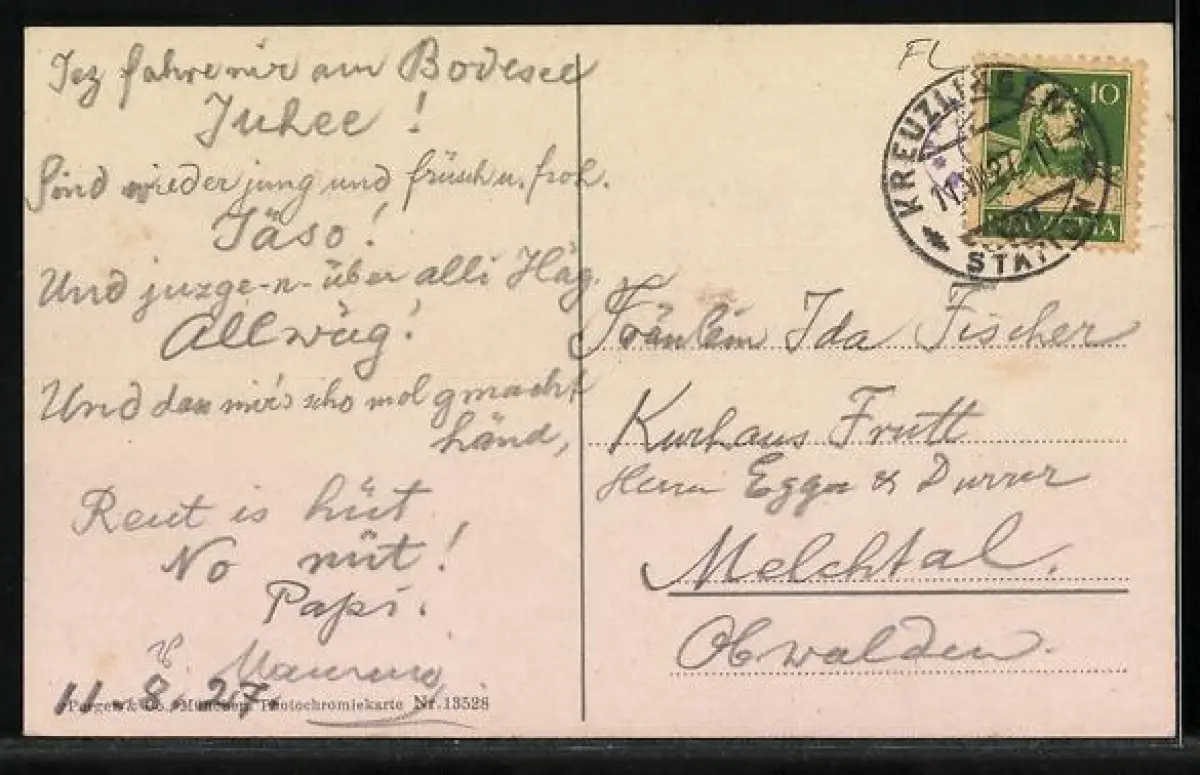 Jez fahre mir am Bodesee
Juhee!
Sind wieder jung und früsch u. froh.
Jäso!
Und juzge-n-über alli Häg.
Allwäg!
Und das mir's scho mol gmacht
händ,
Reut is hüt
No nüt!
Papi.
11 8 27
Purger & Co., München, Photochromiekarte Nr. 13528
FL
KREUZLINGEN
11.VIII.27
STATION
10
HELVETIA
Fräulein Ida Fischer
Kurhaus Frutt
Herrn Egger & Durrer
Melchtal.
Obwalden.